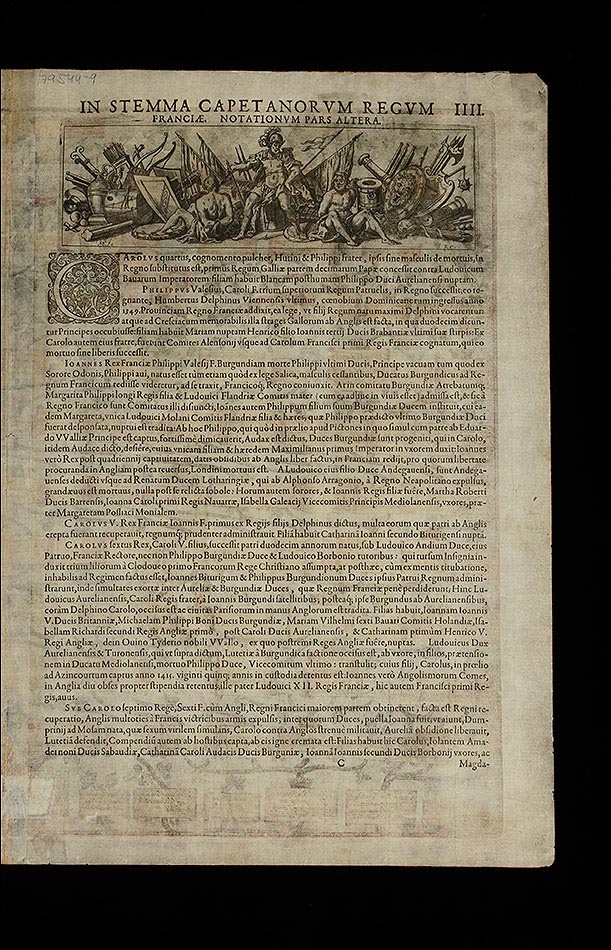 79544-9
IN STEMMA CAPETANORVM REGVM IIII.
FRANCIÆ. NOTATIONVM PARS ALTERA.
CAROLVS quartus, cognomento pulcher, Hutini & Philippi frater, ipsis sine masculis de mortuis, in
Regno substitutus est, primus Regum Galliæ partem decimarum Papæ concessit contra Ludouicum
Bauarum Imperatorem: filiam habuit Blancam posthumam Philippo Duci Aurelianensi nuptam.
PHILIPPVS Valesius, Caroli F. trium superiorum Regum Patruelis, in Regno successit, eo re-
gnante, Humbertus Delphinus Viennensis vltimus, cœnobium Dominicanorum ingressus anno
1349. Prouinciam Regno Franciæ addixit, ea lege, vt filij Regum natu maximi Delphini vocarentur:
atque ad Cresciacum memorabilis illa strages Gallorum ab Anglis est facta, in qua duodecim dicun-
tur Principes occubuisse: filiam habuit Mariam nuptam Henrico filio Ioannis tertij Ducis Brabantiæ vltimi suæ stirpis: Ex
Carolo autem eius fratre, fuerunt Comites Alensonij vsque ad Carolum Francisci primi Regis Franciæ cognatum, qui eo
mortuo sine liberis successit.
IOANNES Rex Franciæ Philippi Valesij F. Burgundiam morte Philippi vltimi Ducis, Principe vacuam tum quod ex
Sorore Odonis, Philippi aui, natus esset tum etiam quòd ex lege Salica, masculis cessantibus, Ducatus Burgundicus ad Re-
gnum Francicum redijsse videretur, ad se traxit, Francicoq; Regno coniunxit. At in comitatu Burgundiæ Atrebatumq;
Margarita Philippi longi Regis filia & Ludouici Flandriæ Comitis mater (cum ea adhuc in viuis esset) admissa est, & sic à
Regno Francico sunt Comitatus illi disiuncti, Ioannes autem Philippum filium suum Burgundiæ Ducem instituit, cui ea-
dem Margareta, vnica Ludouici Molani Comitis Flandriæ filia & hæres, quæ Philippo prædicto vltimo Burgundiæ Duci
fuerat desponsata, nuptui est tradita: Ab hoc Philippo, qui quòd in prælio apud Pictones in quo simul cum patre ab Eduar-
do VValliæ Principe est captus, fortissimè dimicauerit, Audax est dictus, Duces Burgundiæ sunt progeniti, qui in Carolo,
itidem Audace dicto, desiêre, cuius vnicam filiam & hæredem Maximilianus primus Imperator in vxorem duxit: Ioannes
verò Rex post quadriennij captiuitatem, datis obsidibus ab Anglis liber factus, in Franciam redijt, pro quorum libertate
procuranda in Angliam postea reuersus, Londini mortuus est. A Ludouico eius filio Duce Andegauensi, sunt Andega-
uenses deducti vsque ad Renatum Ducem Lotharingiæ, qui ab Alphonso Arragonio, à Regno Neapolitano expulsus,
grandæuus est mortuus, nulla post se relicta sobole: Horum autem sorores, & Ioannis Regis filiæ fuêre, Martha Roberti
Ducis Barrensis, Ioanna Caroli primi Regis Nauarræ, Isabella Galeacij Vicecomitis Principis Mediolanensis, vxores, præ-
ter Margaretam Possiaci Monialem.
CAROLVS V. Rex Franciæ Ioannis F. primus ex Regijs filijs Delphinus dictus, multa eorum quæ patri ab Anglis
erepta fuerant recuperauit, regnumq; prudenter administrauit Filiā habuit Catharinā Ioanni secundo Biturigensi nuptā.
CAROLVS sextus Rex, Caroli V. filius, successit patri duodecim annorum natus, sub Ludouico Andium Duce, eius
Patruo, Franciæ Rectore, nec non Philippo Burgundiæ Duce & Ludouico Borbonio tutoribus: qui rursum Insignia in-
duxit trium liliorum à Clodoueo primo Francorum Rege Christiano assumpta, at posthæc, cùm ex mentis titubatione,
inhabilis ad Regimen factus esset, Ioannes Biturigum & Philippus Burgundionum Duces ipsius Patrui Regnum admini-
strarunt, inde simultates exortæ inter Aureliæ & Burgundiæ Duces, quæ Regnum Franciæ penè perdiderunt; Hinc Lu-
douicus Aurelianensis, Caroli Regis frater, à Ioannis Burgundi satellitibus; posteaq; ipse Burgundus ab Aurelianensibus,
corām Delphino Carolo, occisus est ac ciuitas Parisiorum in manus Anglorum est tradita. Filias habuit, Ioannam Ioannis
V. Ducis Britanniæ, Michaelam Philippi Boni Ducis Burgundiæ, Mariam Vvilhelmi sexti Bauari Comitis Holandiæ, Isa-
bellam Richardi secundi Regis Angliæ primò, post Caroli Ducis Aurelianensis, & Catharinam ptimùm Henrico V.
Regi Angliæ, dein Ouino Tyderio nobili VVallo, ex quo postremi Reges Angliæ fuêre, nuptas. Ludouicus Dux
Aurelianensis & Turonensis, qui vt supra dictum, Lutetiæ à Burgundica factione occisus est, ab vxore, in filios, prætensio-
nem in Ducatu Mediolanensi, mortuo Philippo Duce, Vicecomitum vltimo: transtulit; cuius filij, Carolus, in prœlio
ad Azincourtum captus anno 1415. viginti quinq; annis in custodia detentus est: Ioannes verò Angolismorum Comes,
in Anglia diu obses propter stipendia retentus, ille pater Ludouici XII. Regis Franciæ, hic autem Francisci primi Re-
gis, auus.
SVB CAROLO septimo Rege, Sexti F. cùm Angli, Regni Francici maiorem partem obtinerent, facta est Regni re-
cuperatio, Anglis multoties à Francis victricibus armis expulsis, inter quorum Duces, puella Ioanna fuit, vt aiunt, Dum-
prinij ad Mosam nata, quæ sexum virilem simulans, Carolo contra Anglos strenuè militauit, Aureliā obsidione liberauit,
Lutetiā defendit, Compendiū autem ab hostibus capta, ab eis igne cremata est: Filias habuit hic Carolus, Iolantem Ama-
dei noni Ducis Sabaudiæ, Catharinā Caroli Audacis Ducis Burguniæ, Ioannā Ioannis secundi Ducis Borbonij vxores, ac
C Magda-